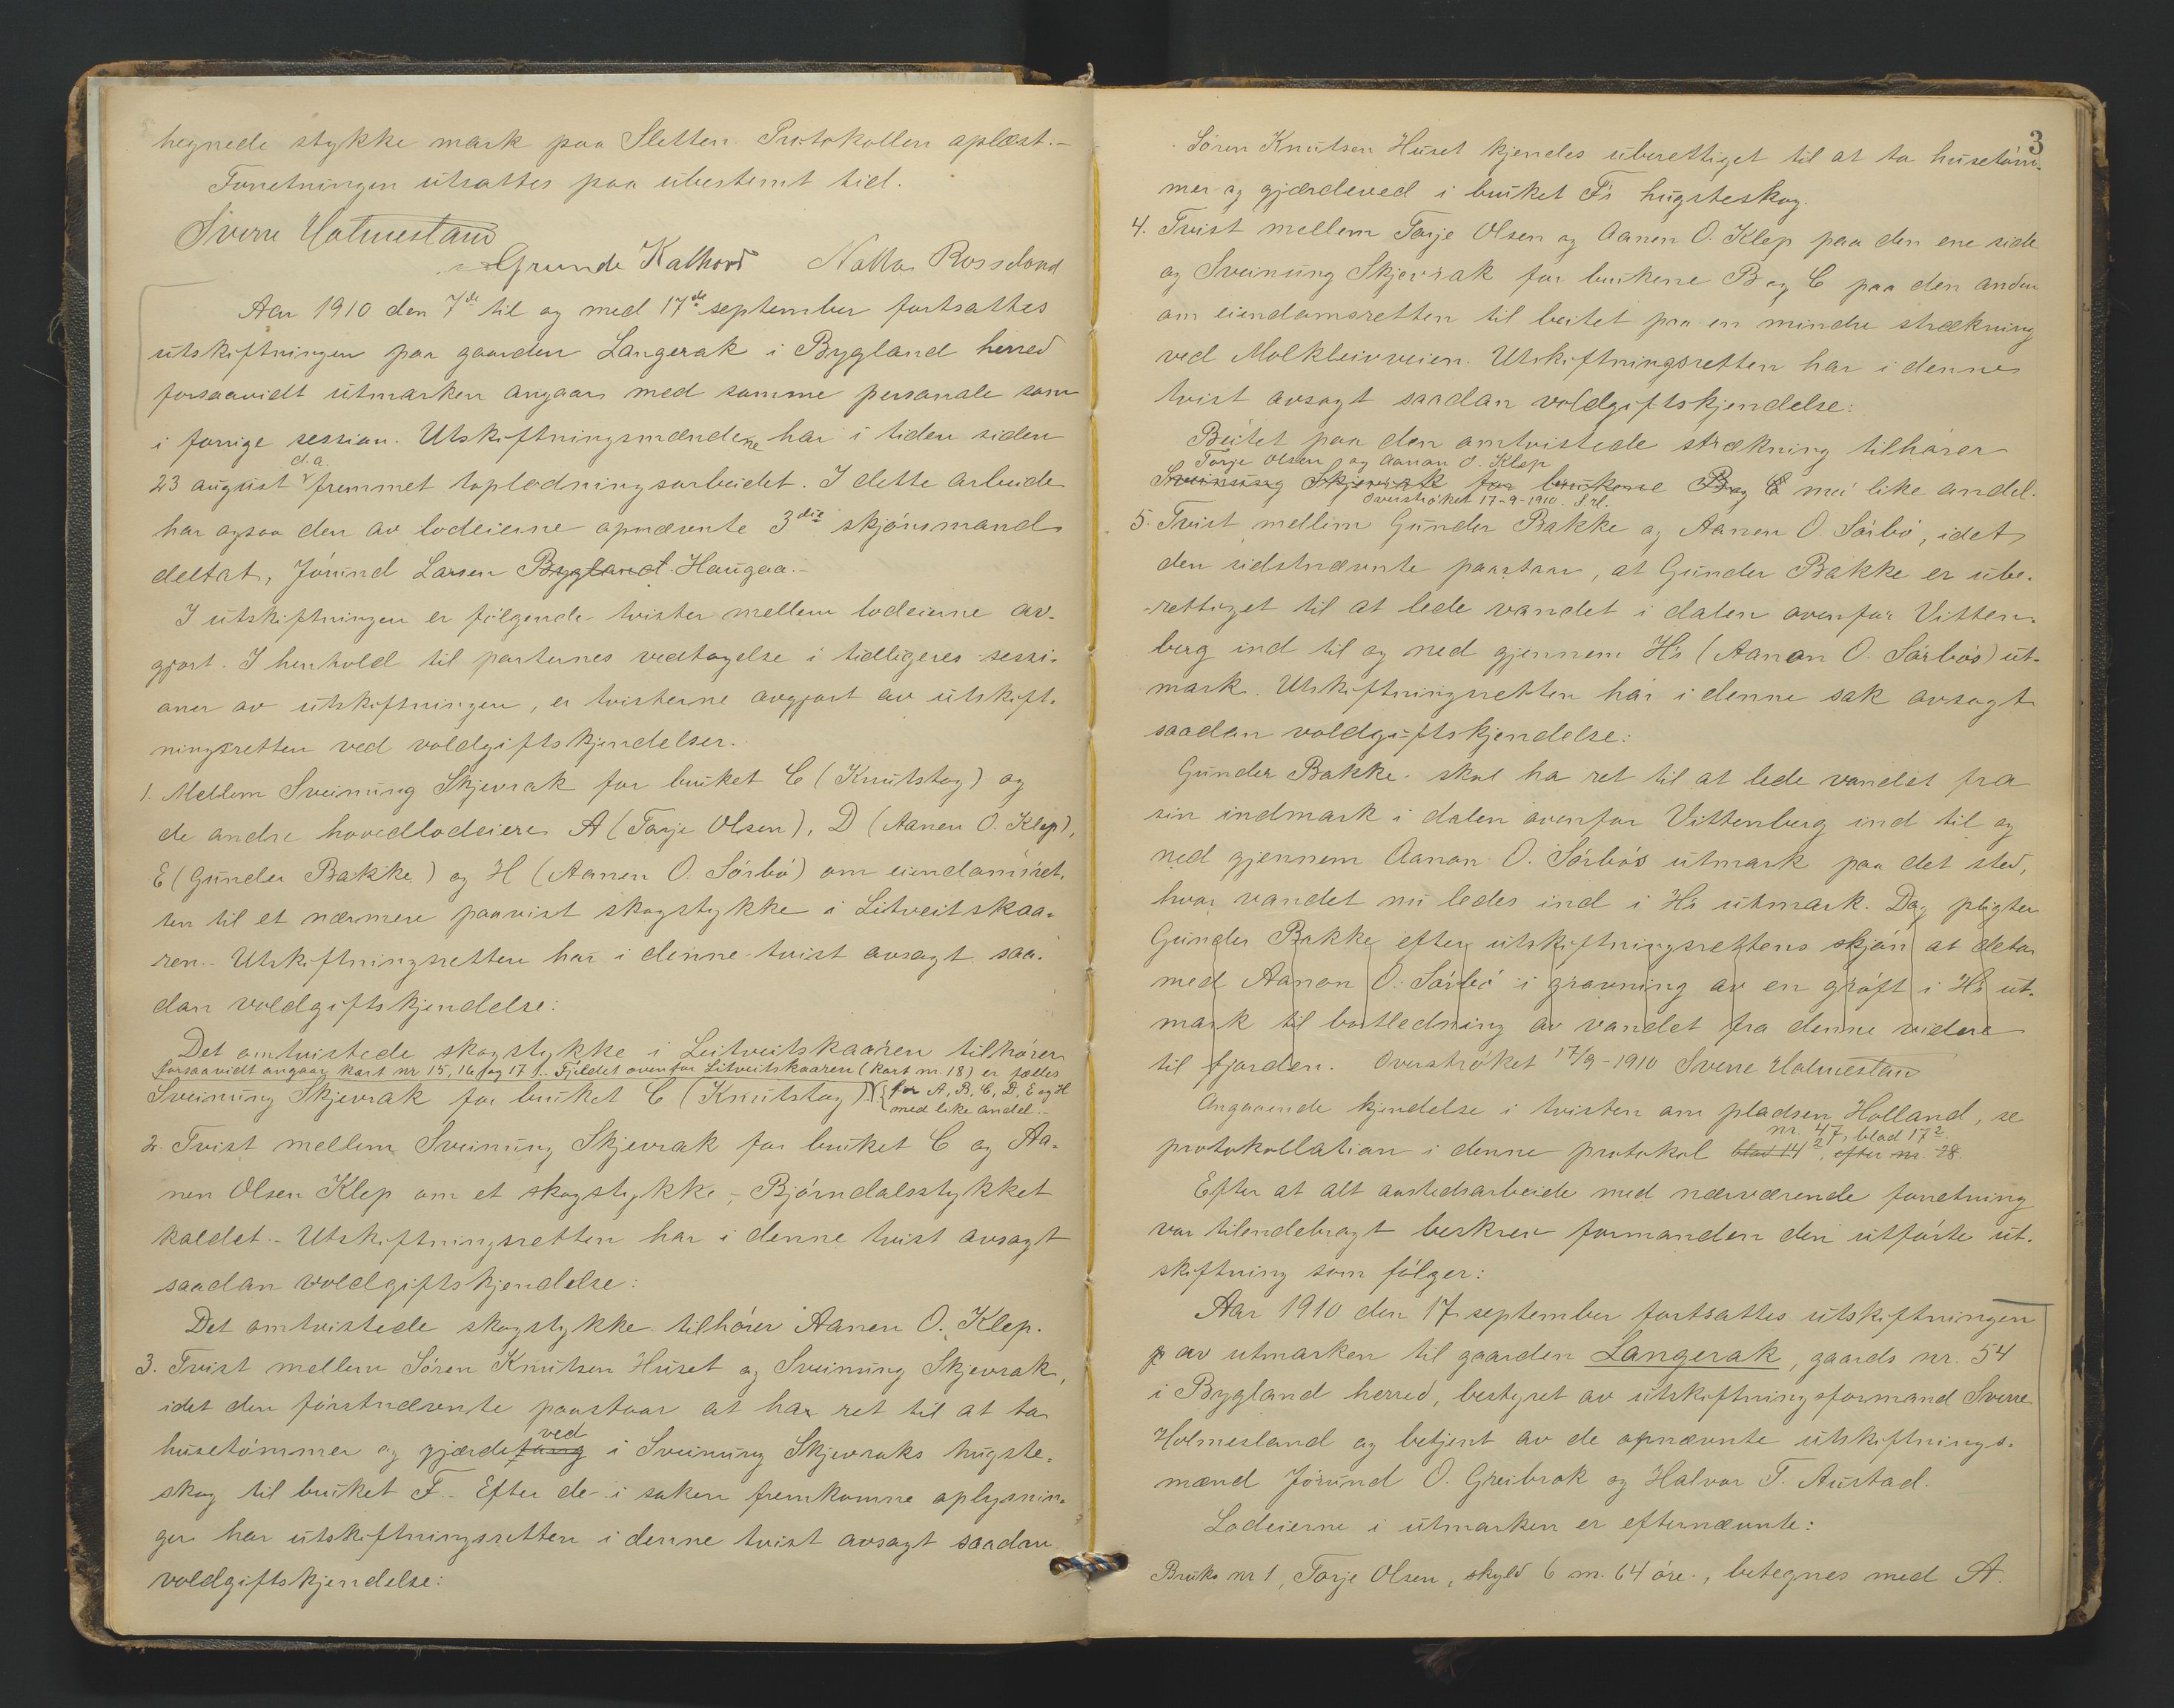 hegnede stykke mark paa Sletten. Protokollen oplæst.-
Forretningen utsattes paa ubestemt tid.
Sverre Holmesland
Grunde Kalhovd Rosseland
Aar 1910 den 7de til og med 17de september fortsattes
utskiftningen paa gaarden Langerak i Bygland herred
forsaavidt utmarken angaar med samme personale som
i forrige session. Utskiftningsmændene har i tiden siden
23 august d.a. fremmet oplodningsarbeidet. I dette arbeide
har ogsaa den av lodeierne opnævnte 3die skjönsmand
deltat, Jörund Larsen Bygland Haugaa.-
I utskiftningen er fölgende tvister mellem lodeierne av-
gjort. I henhold til parternes vedtagelse i tidligeres sessi-
oner av utskiftningen, er tvisterne avgjort av utskift-
ningsretten ved voldgiftskjendelser.
1. Mellem Sveinung Skjevrak for bruket C (Knutstog) og
de andre hovedlodeiere A (Tarje Olsen), D (Aanen O. Klep),
E (Gunder Bakke) og H (Aanen O. Sörbö) om eiendomsret-
ten til et nærmere paavist skogstykke i Litveitskaa-
ren.- Utskiftningsretten har i denne tvist avsagt saa-
dan voldgiftskjendelse:
Det omtvistede skogstykke i Leitveitskaaren tilhörer
forsaavidt angaar kart nr 15, 16 og 17. Fjeldet ovenfor Litveitskaaren (kart nr. 18) er fælles
Sveinung Skjevrak for bruket C (Knutstog) for A, B, C, D, E og H
med like andel.-
2. Tvist mellem Sveinung Skjevrak for bruket C og Aa-
nen Olsen Klep om et skogstykke, - Björndalsstykket
kaldet.- Utskiftningsretten har i denne tvist avsagt
saadan voldgiftskjendelse:
Det omtvistede skogstykke tilhörer Aanen O. Klep.
3. Tvist mellem Sören Knutsen Huset og Sveinung Skjevrak,
idet den förstnævnte paastaar at har ret til at ta
ved
husetömmer og gjærdefang i Sveinung Skjevraks hugste-
skog til bruket F. Efter de i saken fremkomne oplysnin-
ger har utskiftningsretten i denne tvist avsagt saadan
voldgiftskjendelse:
3
Sören Knutsen Huset kjendes uberettiget til at ta husetöm-
mer og gjærdeved i bruket F's hugsteskog.
4. Tvist mellem Tarje Olsen og Aanen O. Klep paa den ene side
og Sveinung Skjevrak for brukene B og C paa den anden
om eiendomsretten til beitet paa en mindre strækning
ved Molkleivveien. Utskiftningsretten har i denne
tvist avsagt saadan voldgiftskjendelse:
Beitet paa den omtvistede strækning tilhører
Tarje Olsen og Aanon O. Klep
Sveinung Skjevrak for brukene B og C med like andel.
Overströket 17-9-1910. S.H.
5. Tvist mellem Gunder Bakke og Aanen O. Sörbö, idet
den sidstnævnte paastaar, at Gunder Bakke er ube-
rettiget til at lede vandet i dalen ovenfor Vitten-
berg ind til og ned gjennem H's (Aanon O. Sörbös) ut-
mark. Utskiftningsretten har i denne sak avsagt
saadan voldgiftskjendelse:
Gunder Bakke skal ha ret til at lede vandet fra
sin indmark i dalen ovenfor Vittenberg ind til og
ned gjennem Aanon O. Sörbös utmark paa det sted,
hvor vandet nu ledes ind i H's utmark. Dog pligter
Gunder Bakke efter utskiftningsrettens skjön at delta
med Aanon O. Sörbö i gravning av en gröft i H's ut-
mark til bortledning av vandet fra denne videre
til fjorden. Overströket 17/9-1910 Sverre Holmesland
Angaaende kjendelse i tvisten om pladsen Holland, se
nr. 47, blad 17²
protokollation i denne protokol blad 14², efter nr 28.
Efter at alt aastedsarbeide med nærværende forretning
var tilendebragt beskrev formanden den utförte ut-
skiftning som fölger:
Aar 1910 den 17 september fortsattes utskiftningen
p av utmarken til gaarden Langerak, gaards nr. 54
i Bygland herred, bestyret av utskiftningsformand Sverre
Holmesland og betjent av de opnævnte utskiftnings-
mænd Jörund O. Greibrok og Halvor T. Austad.
Lodeierne i utmarken er efternævnte:
Bruks nr 1, Tarje Olsen, skyld 6 m. 64 öre., betegnes med A.